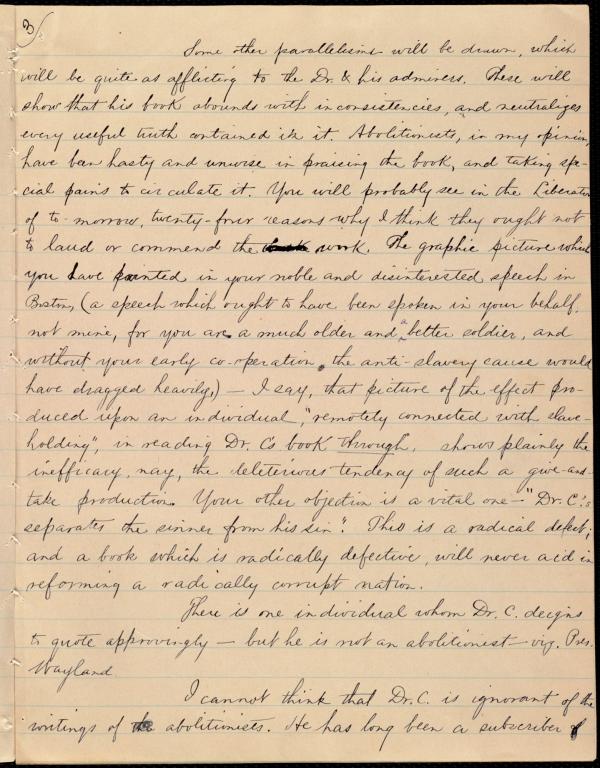 3
Some other parallelisms will be drawn, which
will be quite as afflicting to the Dr. & his admirers. These will
show that his book abounds with inconsistencies, and neutralizes
every useful truth contained in it. Abolitionists, in my opinion,
have been hasty and unwise in praising the book, and taking spe-
cial pains to circulate it. You will probably see in the Liberator
of to-morrow, twenty-four reasons why I think they ought not
to laud or commend the work. The graphic picture which
you have painted in your noble and disinterested speech in
Boston, (a speech which ought to have been spoken in your behalf,
not mine, for you are a much older and a better soldier, and
without your early co-operation, the anti-slavery cause would
have dragged heavily,) — I say, that picture of the effect pro-
duced upon an individual, "remotely connected with slave-
holding", in reading Dr. C's book through, shows plainly the
inefficacy, nay, the deleterious tendency of such a give-and-
take production. Your other objection is a vital one — "Dr. C.
separates the sinner from his sin". This is a radical defect;
and a book which is radically defective, will never aid in
reforming a radically corrupt nation.
There is one individual whom Dr. C. deigns
to quote approvingly — but he is not an abolitionist — viz. Pres.
Wayland.
I cannot think that Dr. C. is ignorant of the
writings of abolitionists. He has long been a subscriber